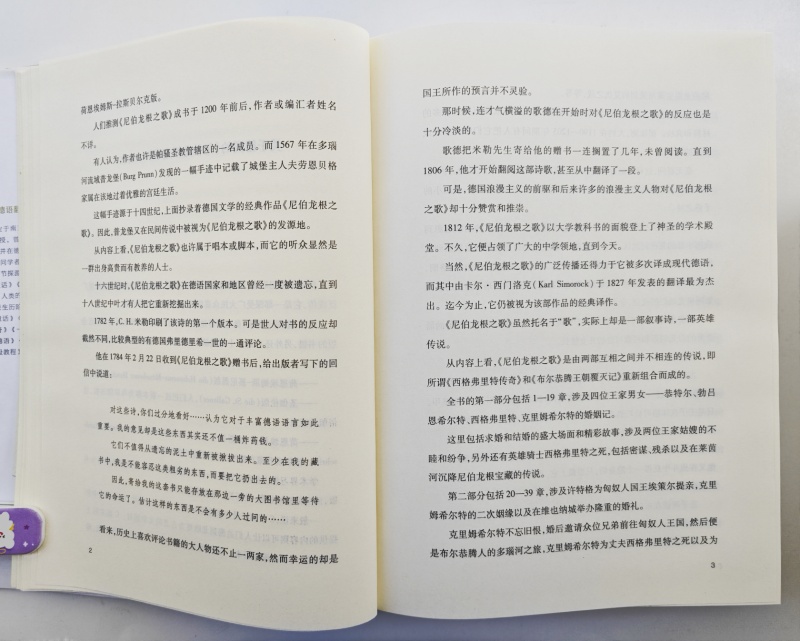 荷恩埃姆斯-拉斯贝尔克版。
人们推测《尼伯龙根之歌》成书于 1200 年前后，作者或编汇者姓名
不详。
有人认为，作者也许是帕骚圣教管辖区的一名成员。而 1567 年在多瑙
河流域普龙堡(Burg Prunn)发现的一幅手迹中记载了城堡主人夫劳恩贝格
家属在该地过着优雅的宫廷生活。
这幅手迹源于十四世纪，上面抄录着德国文学的经典作品《尼伯龙根之
歌》。因此，普龙堡又在民间传说中被视为《尼伯龙根之歌》的发源地。
从内容上看，《尼伯龙根之歌》也许属于唱本或脚本，而它的听众显然是
一群出身高贵而有教养的人士。
十六世纪时，《尼伯龙根之歌》在德语国家和地区曾经一度被遗忘，直到
十八世纪中叶才有人把它重新挖掘出来。
1782 年，C. H. 米勒印刷了该诗的第一个版本。可是世人对书的反应却
截然不同，比较典型的有德国弗里德里希一世的一通评论。
他在 1784 年 2 月 22 日收到《尼伯龙根之歌》赠书后，给出版者写下的回
信中说道：
对这些诗，你们过分地看好……认为它对于丰富德语语言如此
重要。我的意见却是这些东西其实还不值一桶炸药钱。
它们不值得从遗忘的泥土中重新被掀拔出来。至少在我的藏
书中，我是不能容忍这类粗劣的东西，而要把它扔出去的。
因此，寄给我的这套书只能存放在那边一旁的大图书馆里等待
它的命运了。估计这样的东西是不会有多少人过问的……
看来，历史上喜欢评论书籍的大人物还不止一两家，然而幸运的却是
2
国王所作的预言并不灵验。
那时候，连才气横溢的歌德在开始时对《尼伯龙根之歌》的反应也是
十分冷淡的。
歌德把米勒先生寄给他的赠书一连搁置了几年，未曾阅读。直到
1806 年，他才开始翻阅这部诗歌，甚至从中翻译了一段。
可是，德国浪漫主义的前驱和后来许多的浪漫主义人物对《尼伯龙根
之歌》却十分赞赏和推崇。
1812 年，《尼伯龙根之歌》以大学教科书的面貌登上了神圣的学术殿
堂。不久，它便占领了广大的中学领地，直到今天。
当然，《尼伯龙根之歌》的广泛传播还得力于它被多次译成现代德语，
而其中由卡尔·西门洛克(Karl Simorock)于 1827 年发表的翻译最为杰
出。迄今为止，它仍被视为该部作品的经典译作。
《尼伯龙根之歌》虽然托名于“歌”，实际上却是一部叙事诗，一部英雄
传说。
从内容上看，《尼伯龙根之歌》是由两部互相之间并不相连的传说，即
所谓《西格弗里特传奇》和《布尔恭腾王朝覆灭记》重新组合而成的。
全书的第一部分包括 1—19 章，涉及四位王家男女——恭特尔、勃吕
恩希尔特、西格弗里特、克里姆希尔特的婚姻记。
这里包括求婚和结婚的盛大场面和精彩故事，涉及两位王家姑嫂的不
睦和纷争，另外还有英雄骑士西格弗里特之死，包括密谋、残杀以及在莱茵
河沉降尼伯龙根宝藏的传说。
第二部分包括 20—39 章，涉及许特格为匈奴人国王埃策尔提亲，克里
姆希尔特的二次姻缘以及在维也纳城举办隆重的婚礼。
克里姆希尔特不忘旧恨，婚后邀请众位兄弟前往匈奴人王国，然后便
是布尔恭腾人的多瑙河之旅，克里姆希尔特为丈夫西格弗里特之死以及为
3